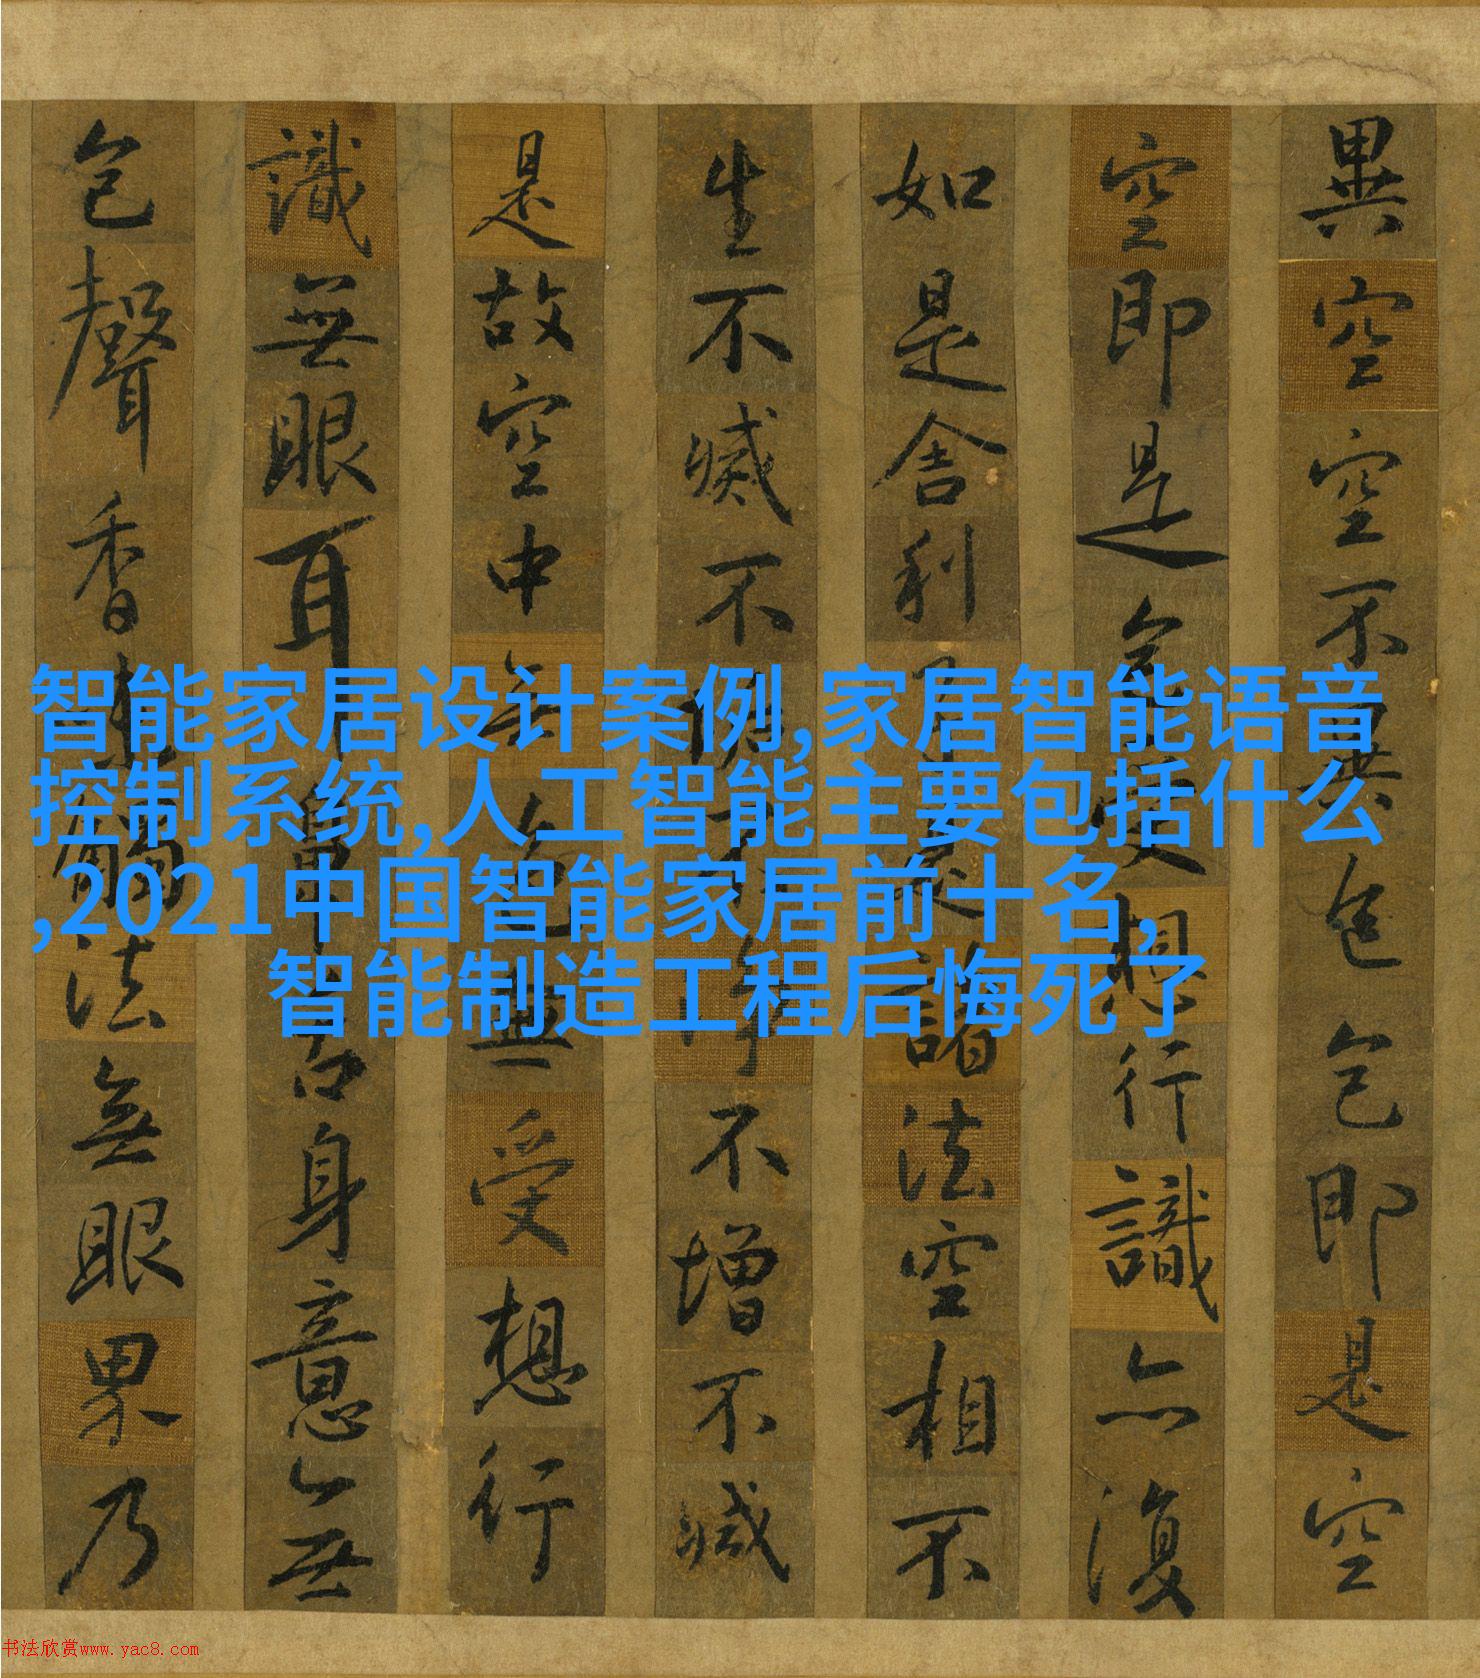 智能家居设计案例,家居智能语音
控制系统,人工智能主要包括什么
,2021中国智能家居前十名,
智能制造工程后悔死了
異空空不異色色即是空
空即是色受想行識亦復
如是舍利子是諸法空相不
生不滅不垢不淨不增不減
是故空中無色無受想行
識無眼耳鼻舌身意無
色聲香味觸法無眼界乃
书法欣赏www.yac8.com